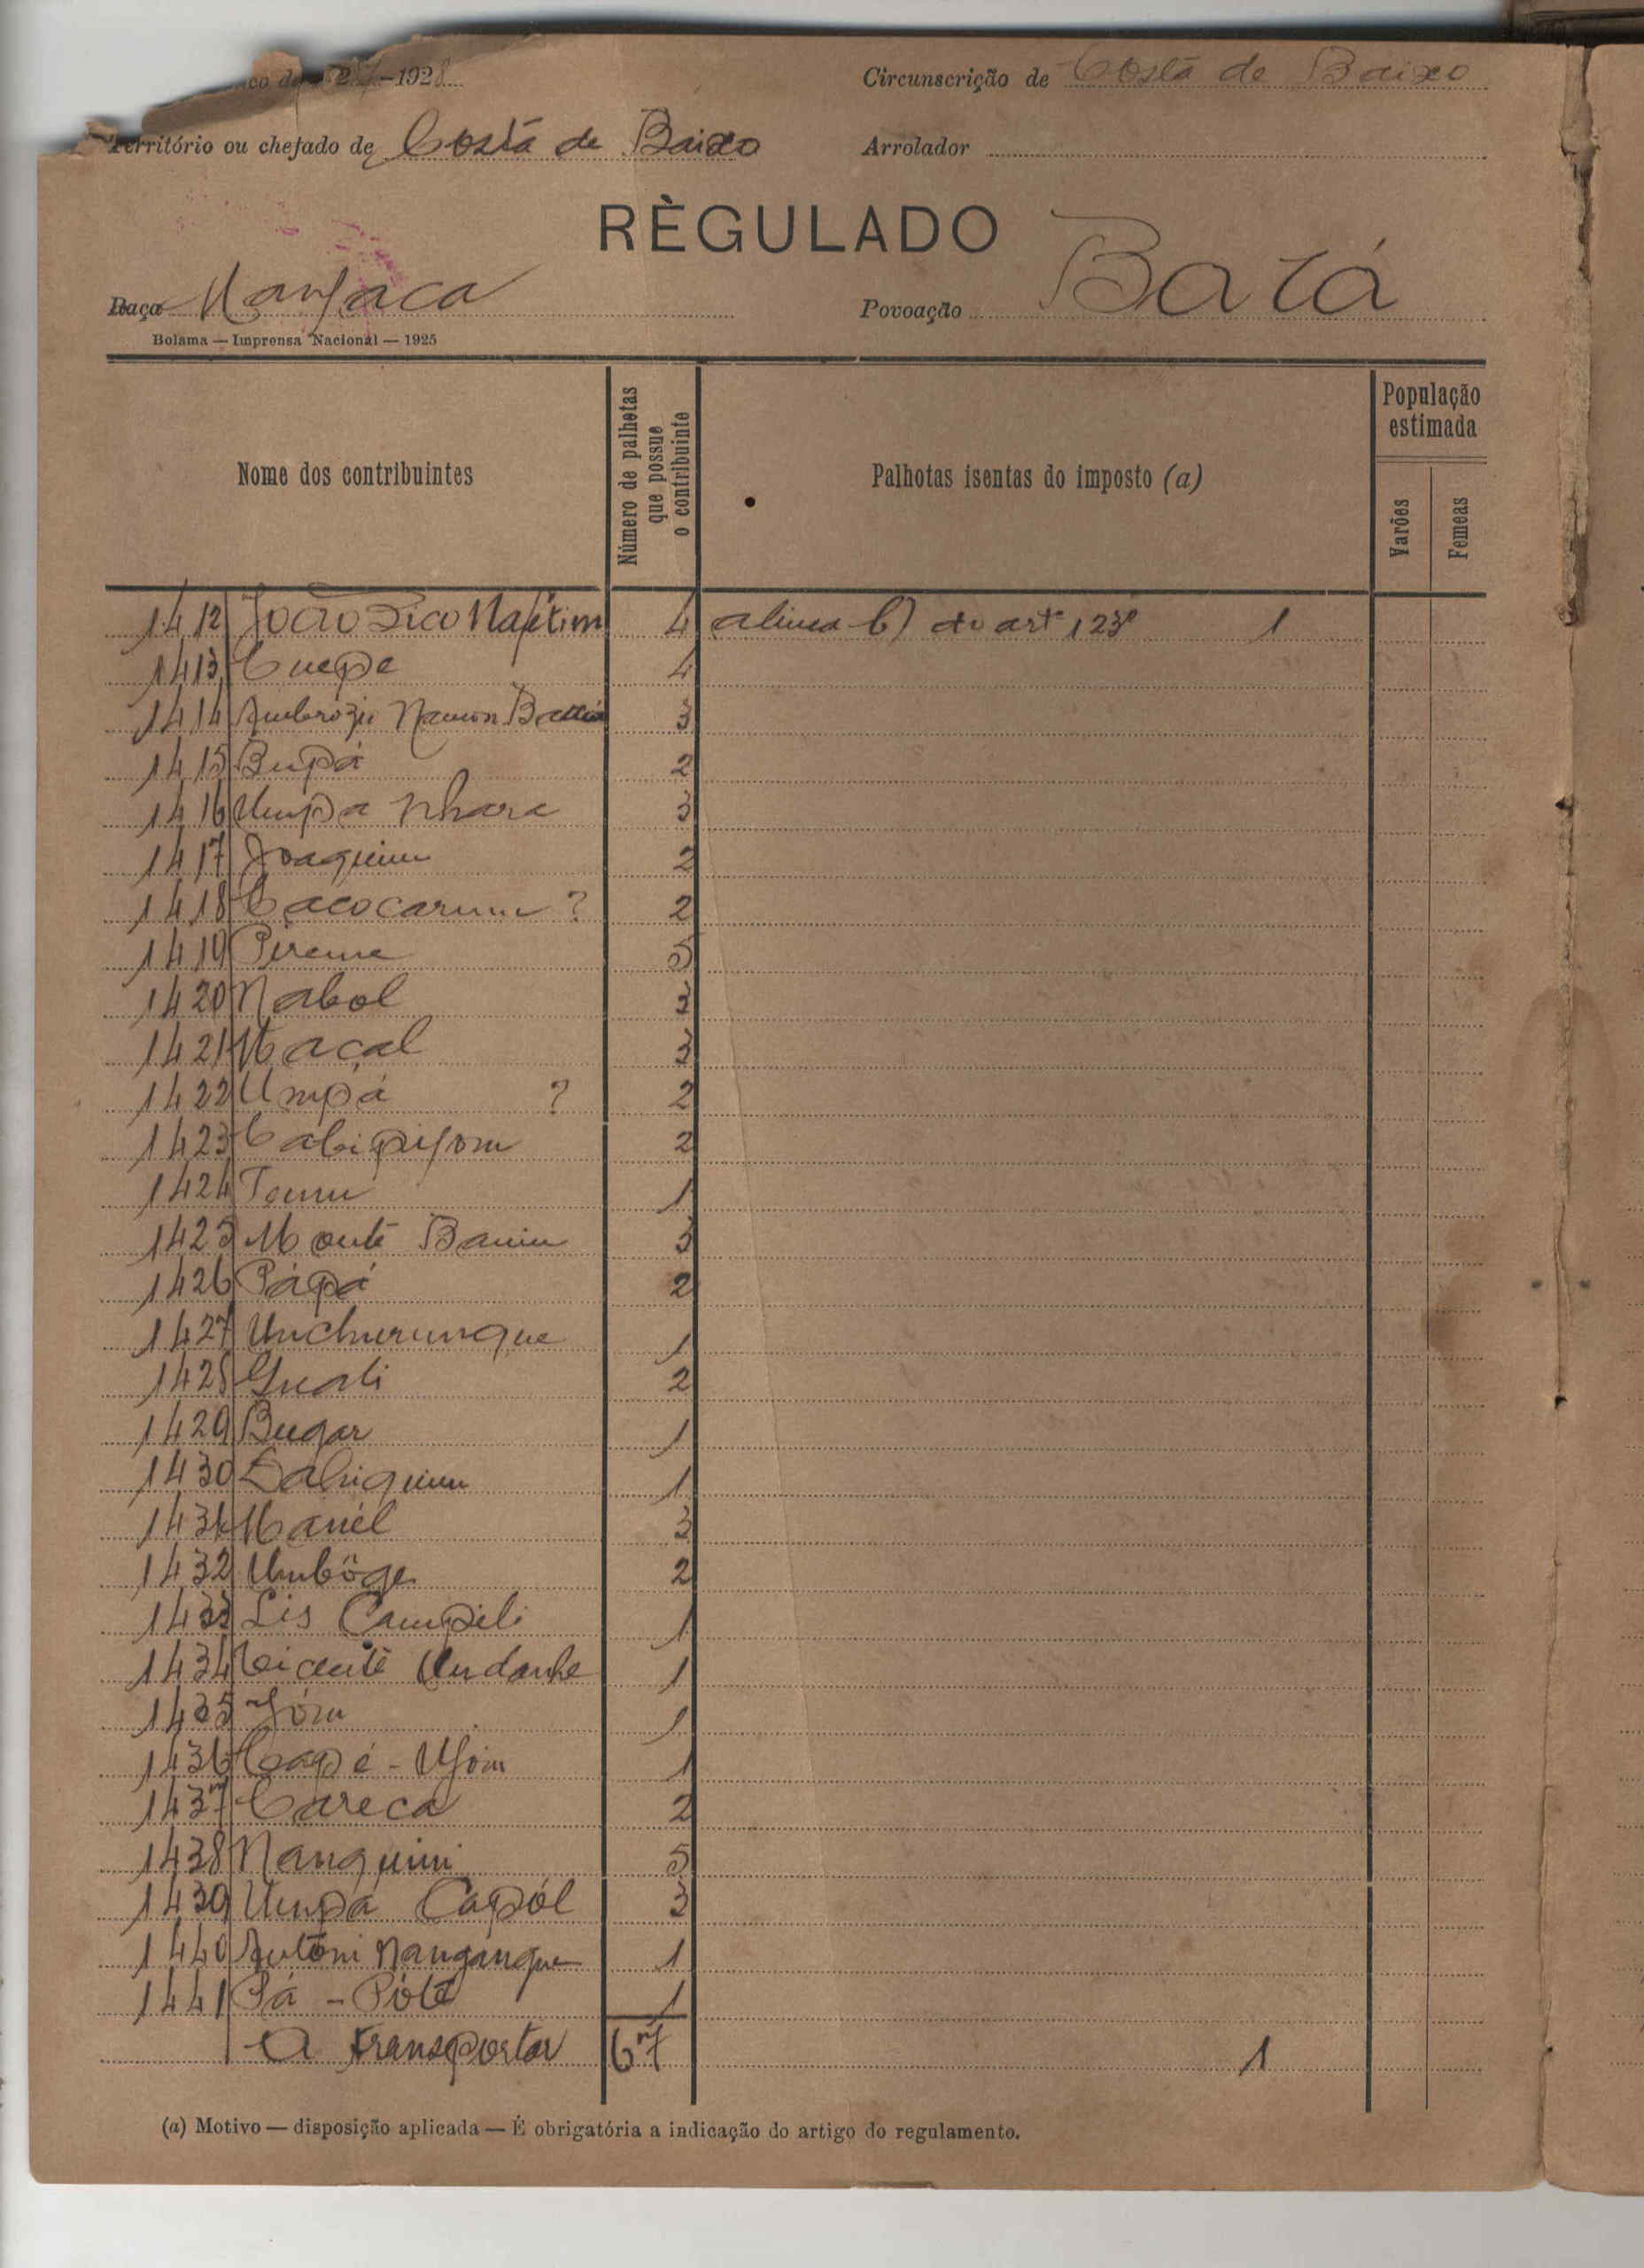 27-1928
Circunscrição de Costa de Baixo
Território ou chefado de Costa de Baixo
Arrolador
RÈGULADO
Raça Manjaca
Povoação Bará
Bolama — Imprensa Nacional — 1925
Nome dos contribuintes
Número de palhetas que possue o contribuinte
Palhotas isentas do imposto (a)
População estimada
Varões
Femeas
1412 João Dico Nafetim 4 alinea b) do artº 123º 1
1413 Cuepe 4
1414 Ambrózio Namon 3
1415 Bupá 2
1416 Umpa Nhara 3
1417 Joaquim 2
1418 Cacocarum ? 2
1419 Pireme 5
1420 Nabol 3
1421 Maçal 3
1422 Umpá ? 2
1423 Cabipijom 2
1424 Tomu 1
1425 Monté Banim 3
1426 Pápá 2
1427 Unchurunque 1
1428 Guali 2
1429 Bugar 1
1430 Dabiquim 1
1431 Manél 3
1432 Umbôge 2
1433 Lis Campili 1
1434 Vicente Undanhe 1
1435 Jóm 1
1436 Capé - Ujóm 1
1437 Careca 2
1438 Nanquim 5
1439 Umpa Capól 3
1440 Antóni Nangangue 1
1441 Pá - Póte 1
A transportar 67 1
(a) Motivo — disposição aplicada — É obrigatória a indicação do artigo do regulamento.